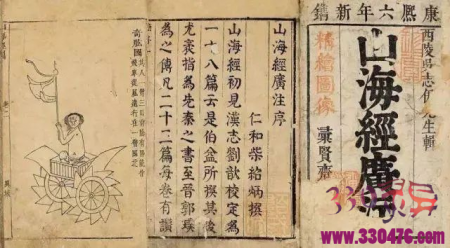 康熙六年新鐫
西陵吳志伊先生輯
山海經廣注
精繪圖像
彙賢齋
山海經廣注序
仁和柴紹炳撰
山海經初見漢志劉歆校定為
一十八篇云是伯益所撰其後
尤袤指為先秦之書至晉郭璞
為之傳凡二十三篇每卷有讚
奇肱國
www.33047C.com